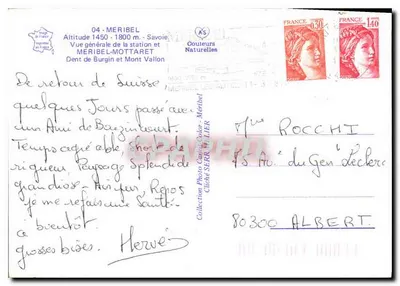 04 - MERIBEL
Altitude 1450 - 1800 m. - Savoie
Vue générale de la station et
MERIBEL-MOTTARET
Dent de Burgin et Mont Vallon
KS
Couleurs
Naturelles
FRANCE
0,30
FRANCE
1,40
De retour de Suisse
quelques Jours passé avec
un Ami de Bazincourt.
Temps agréable, Short de
rigueur. Paysage splendide
grandiose. Air pur, Repos
je me refais une Santé.
à bientôt
grosses bises. Hervé
Mme ROCCHI
Av. du Gen Leclerc
80300 ALBERT
Collection Photo Color - Méribel
Cliché SERR